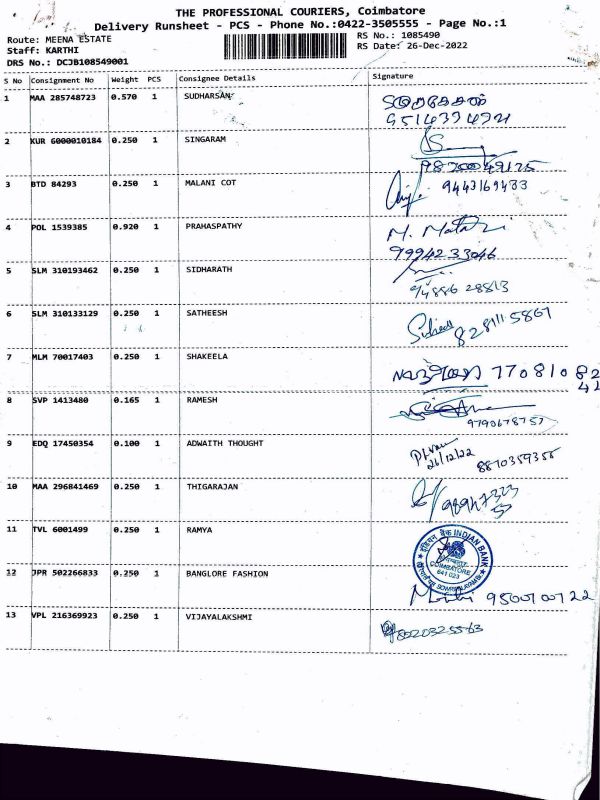 THE PROFESSIONAL COURIERS, Coimbatore
Delivery Runsheet - PCS - Phone No.:0422-3505555 - Page No.:1
Route: MEENA ESTATE
RS No.: 1085490
Staff: KARTHI
RS Date: 26-Dec-2022
DRS No.: DCJB108549001
S No Consignment No Weight PCS Consignee Details Signature
1 MAA 285748723 0.570 1 SUDHARSAN
2 KUR 6000010184 0.250 1 SINGARAM
3 BTD 84293 0.250 1 MALANI COT 9443169433
4 POL 1539385 0.920 1 PRAHASPATHY M.
9994233046
5 SLM 310193462 0.250 1 SIDHARATH
94886 28813
6 SLM 310133129 0.250 1 SATHEESH
828111 5867
7 MLM 70017403 0.250 1 SHAKEELA 77081082
41
8 SVP 1413480 0.165 1 RAMESH
9790678757
9 EDQ 17450354 0.100 1 ADWAITH THOUGHT
26/12/22 8870359355
10 MAA 296841469 0.250 1 THIGARAJAN
11 TVL 6001499 0.250 1 RAMYA
इंडियन बैंक INDIAN BANK
COIMBATORE
641 023
12 JPR 502266833 0.250 1 BANGLORE FASHION
9500100722
13 VPL 216369923 0.250 1 VIJAYALAKSHMI